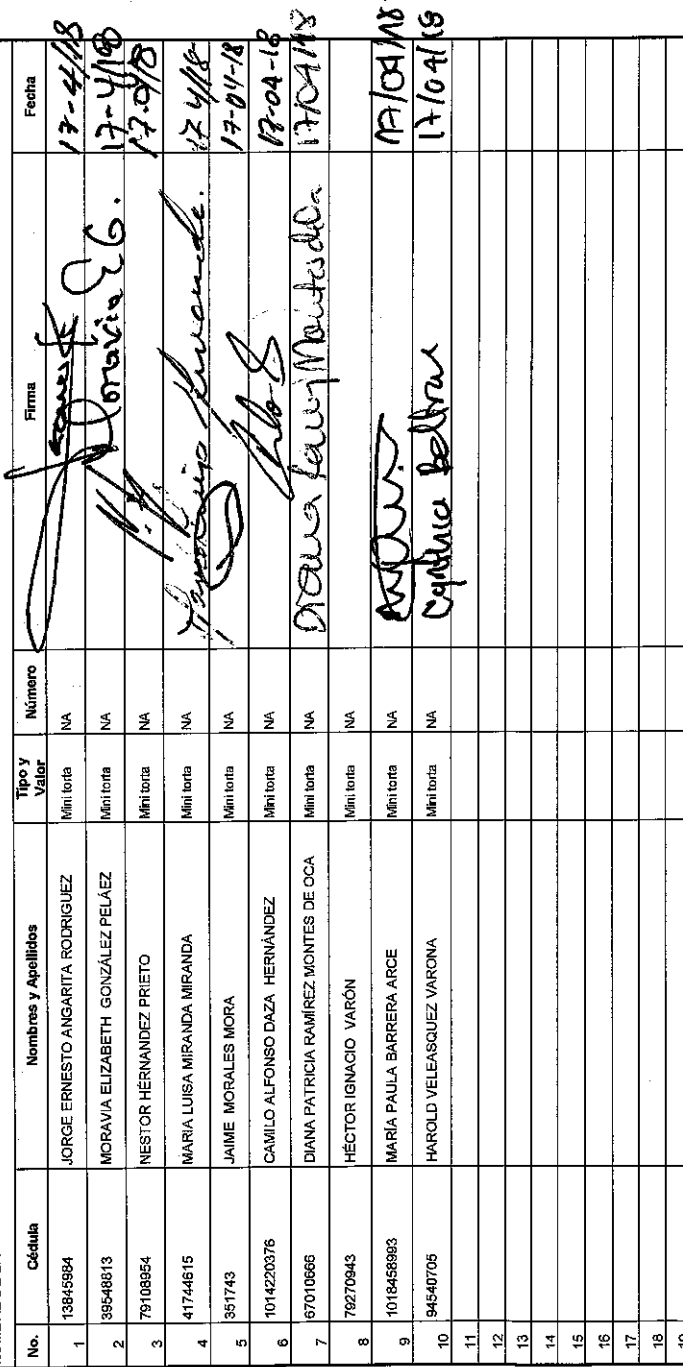 No. Cédula Nombres y Apellidos Tipo y Valor Número Firma Fecha
1 13845984 JORGE ERNESTO ANGARITA RODRIGUEZ Mini torta NA 17-4/18
2 39548813 MORAVIA ELIZABETH GONZÁLEZ PELÁEZ Mini torta NA Moravia E G. 17-4/18
3 79108954 NESTOR HERNANDEZ PRIETO Mini torta NA 17-04/18
4 41744615 MARIA LUISA MIRANDA MIRANDA Mini torta NA 17 4/18
5 351743 JAIME MORALES MORA Mini torta NA 17-04-18
6 1014220376 CAMILO ALFONSO DAZA HERNÁNDEZ Mini torta NA 17-04-18
7 67010666 DIANA PATRICIA RAMÍREZ MONTES DE OCA Mini torta NA Diana 17/04/18
8 79270943 HÉCTOR IGNACIO VARÓN Mini torta NA
9 1018458993 MARÍA PAULA BARRERA ARCE Mini torta NA 17/04/18
10 94540705 HAROLD VELEASQUEZ VARONA Mini torta NA Cynthia Beltran 17/04/18
11
12
13
14
15
16
17
18
19